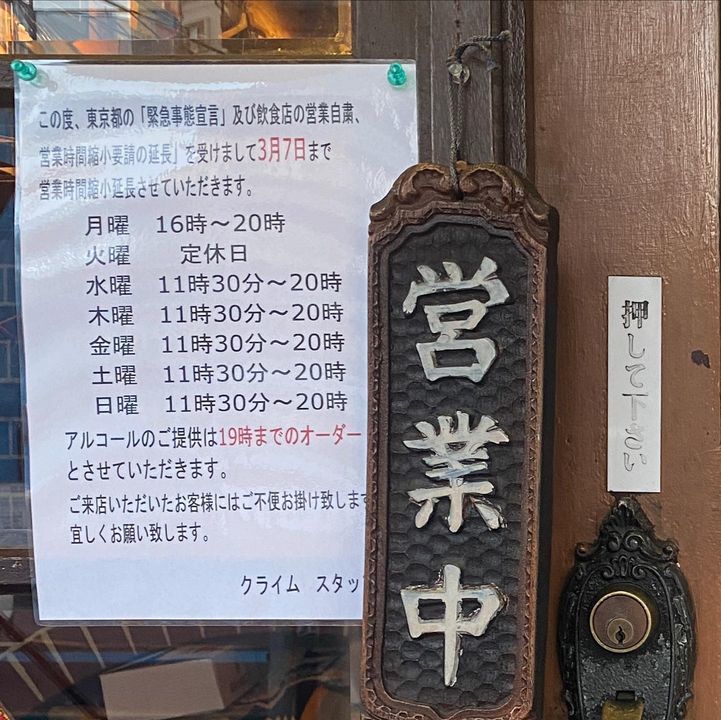 この度、東京都の「緊急事態宣言」及び飲食店の営業自粛、
営業時間縮小要請の延長」を受けまして3月7日まで
営業時間縮小延長させていただきます。
月曜 16時～20時
火曜 定休日
水曜 11時30分～20時
木曜 11時30分～20時
金曜 11時30分～20時
土曜 11時30分～20時
日曜 11時30分～20時
アルコールのご提供は19時までのオーダー
とさせていただきます。
ご来店いただいたお客様にはご不便お掛け致します
宜しくお願い致します。
クライム スタッ
営業中
押して下さい